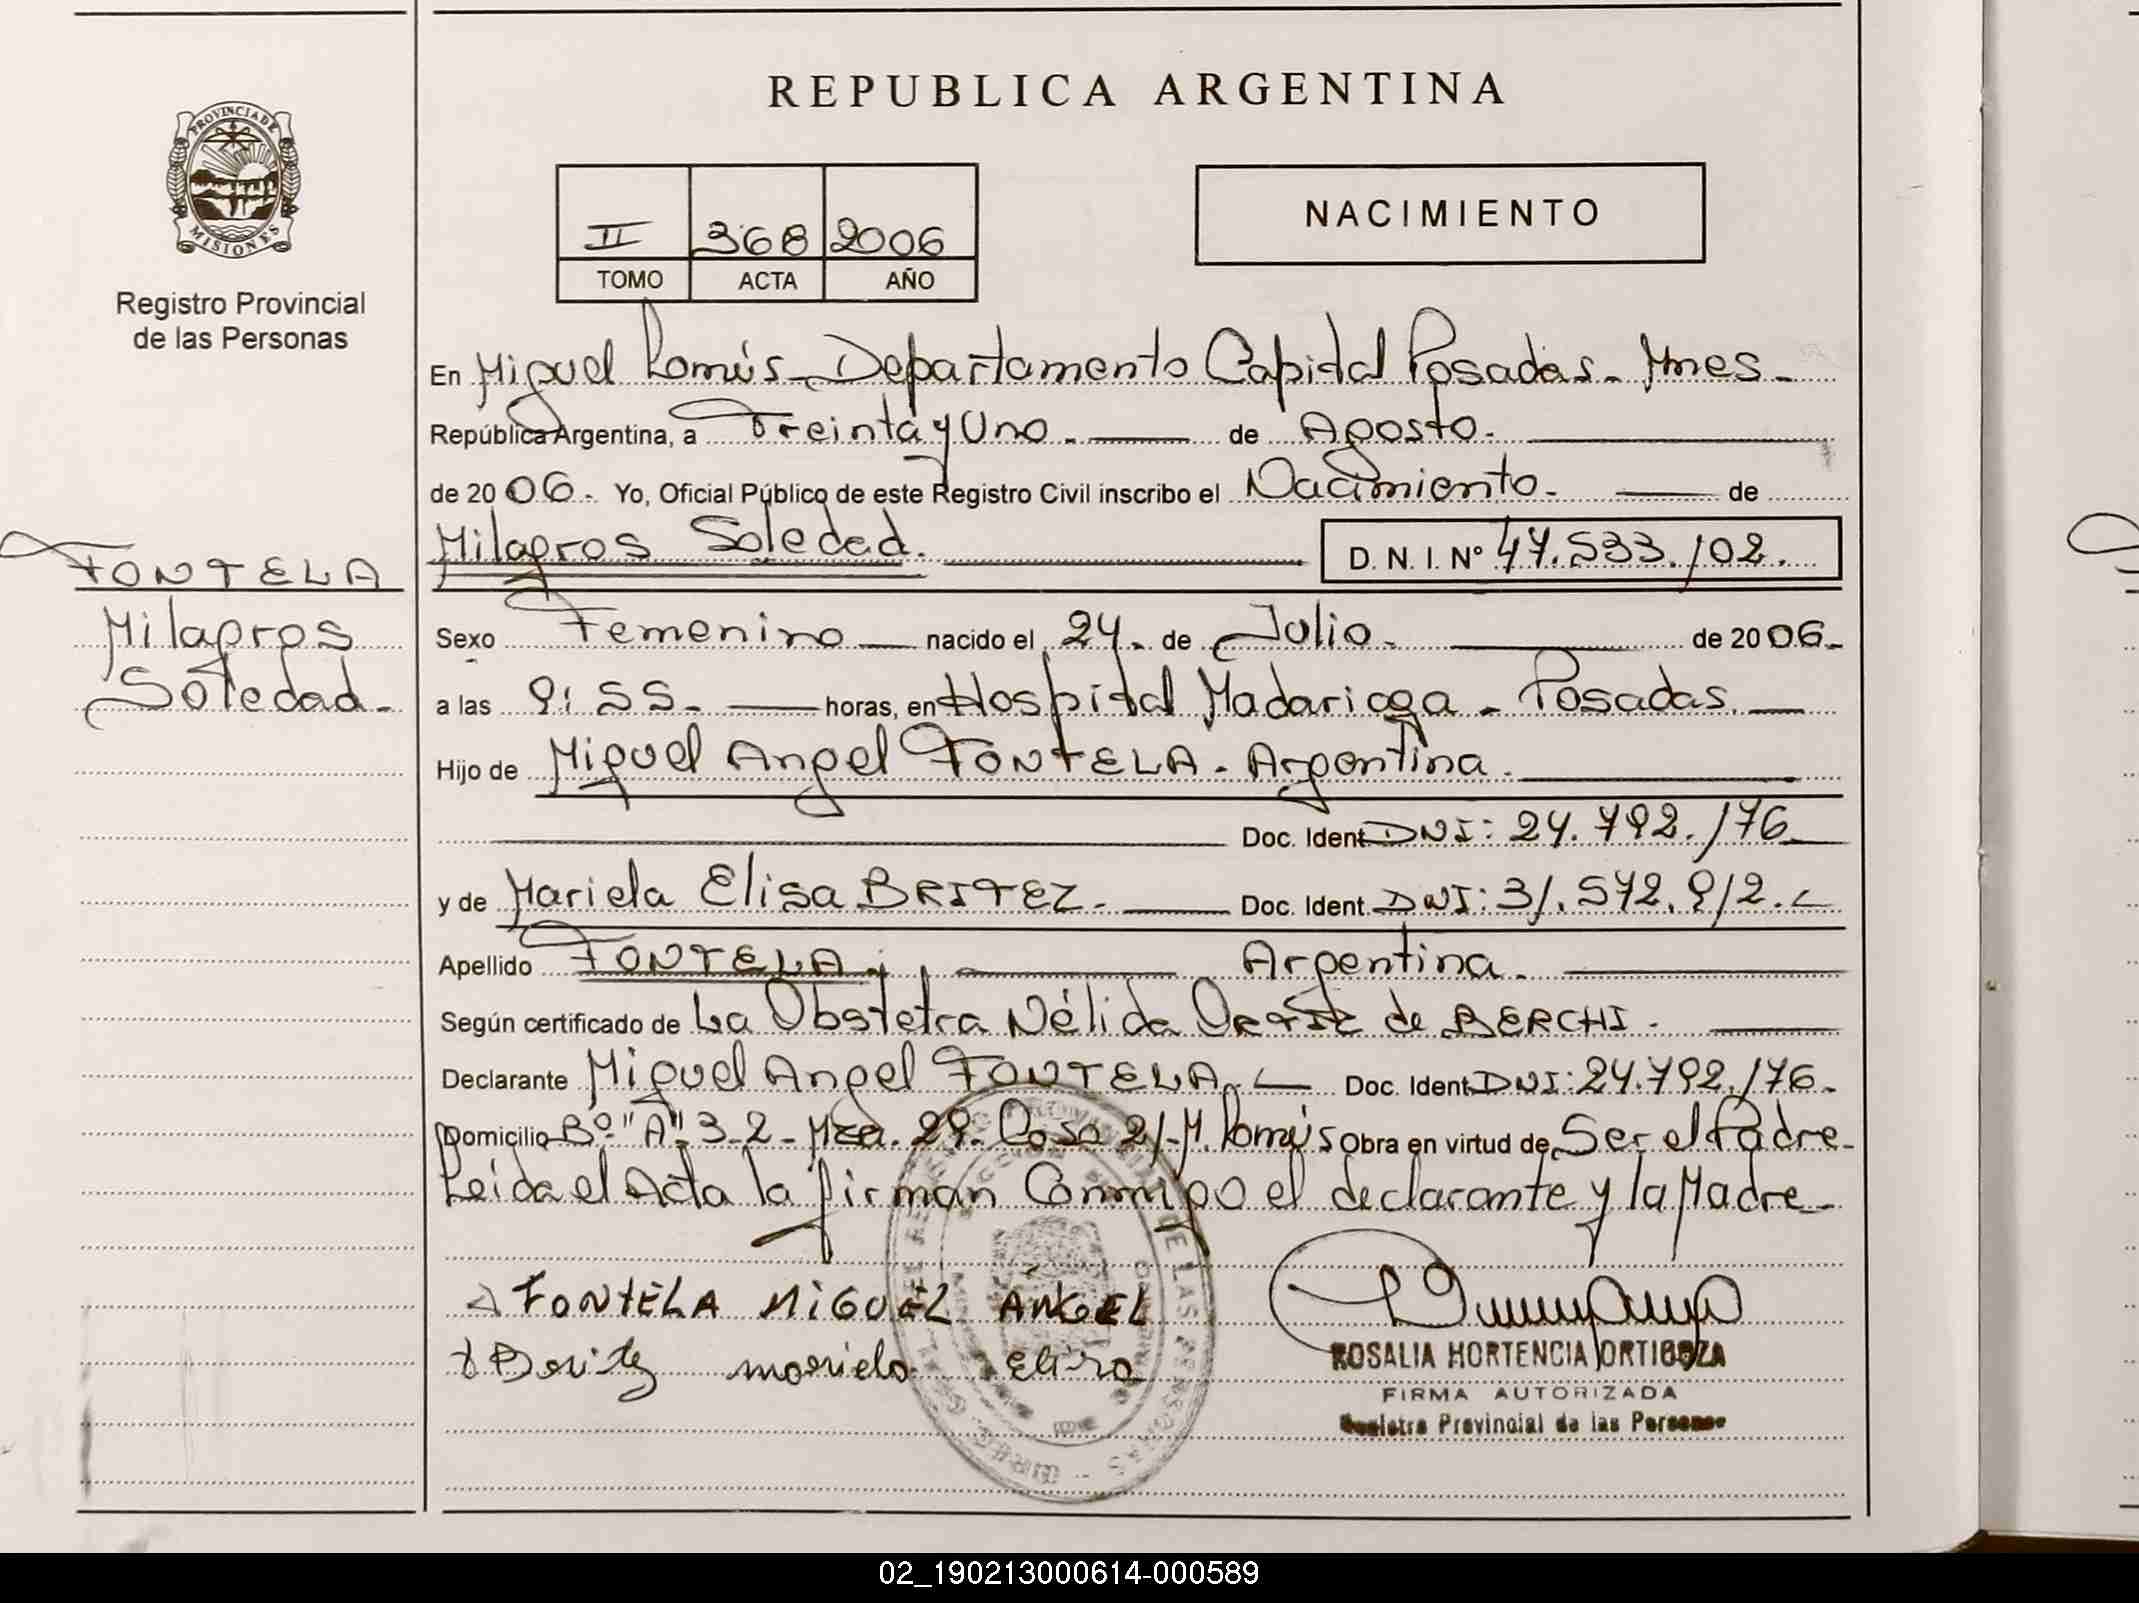 REPUBLICA ARGENTINA
PROVINCIA DE MISIONES
Registro Provincial
de las Personas
II 368 2006
TOMO ACTA AÑO
NACIMIENTO
En Miguel Lanús - Departamento Capital Posadas - Mnes -
República Argentina, a Treinta y Uno. de Agosto.
de 2006. Yo, Oficial Público de este Registro Civil inscribo el Nacimiento. de
Milagros Soledad. D. N. I. Nº 47.533.102.
FONTELA
Milagros
Soledad.
Sexo Femenino nacido el 24. de Julio. de 2006.
a las 9:55. horas, en Hospital Madariaga - Posadas.
Hijo de Miguel Angel FONTELA. Argentina.
Doc. Ident. DNI: 24.792.176
y de Mariela Elisa BRITEZ. Doc. Ident. DNI: 31.572.912.
Apellido FONTELA. Argentina.
Según certificado de La Obstetra Nélida ORTIZ de BERCHI.
Declarante Miguel Angel FONTELA. Doc. Ident. DNI: 24.792.176.
Domicilio Bº "A" 3-2 - Mza. 29. Casa 21-M. Lanús obra en virtud de Ser el Padre -
Leida el Acta la firman Conmigo el declarante y la Madre -
FONTELA MIGUEL ÁNGEL
Britez mariela Elisa
ROSALIA HORTENCIA ORTIGOZA
FIRMA AUTORIZADA
Registro Provincial de las Personas
02_190213000614-000589